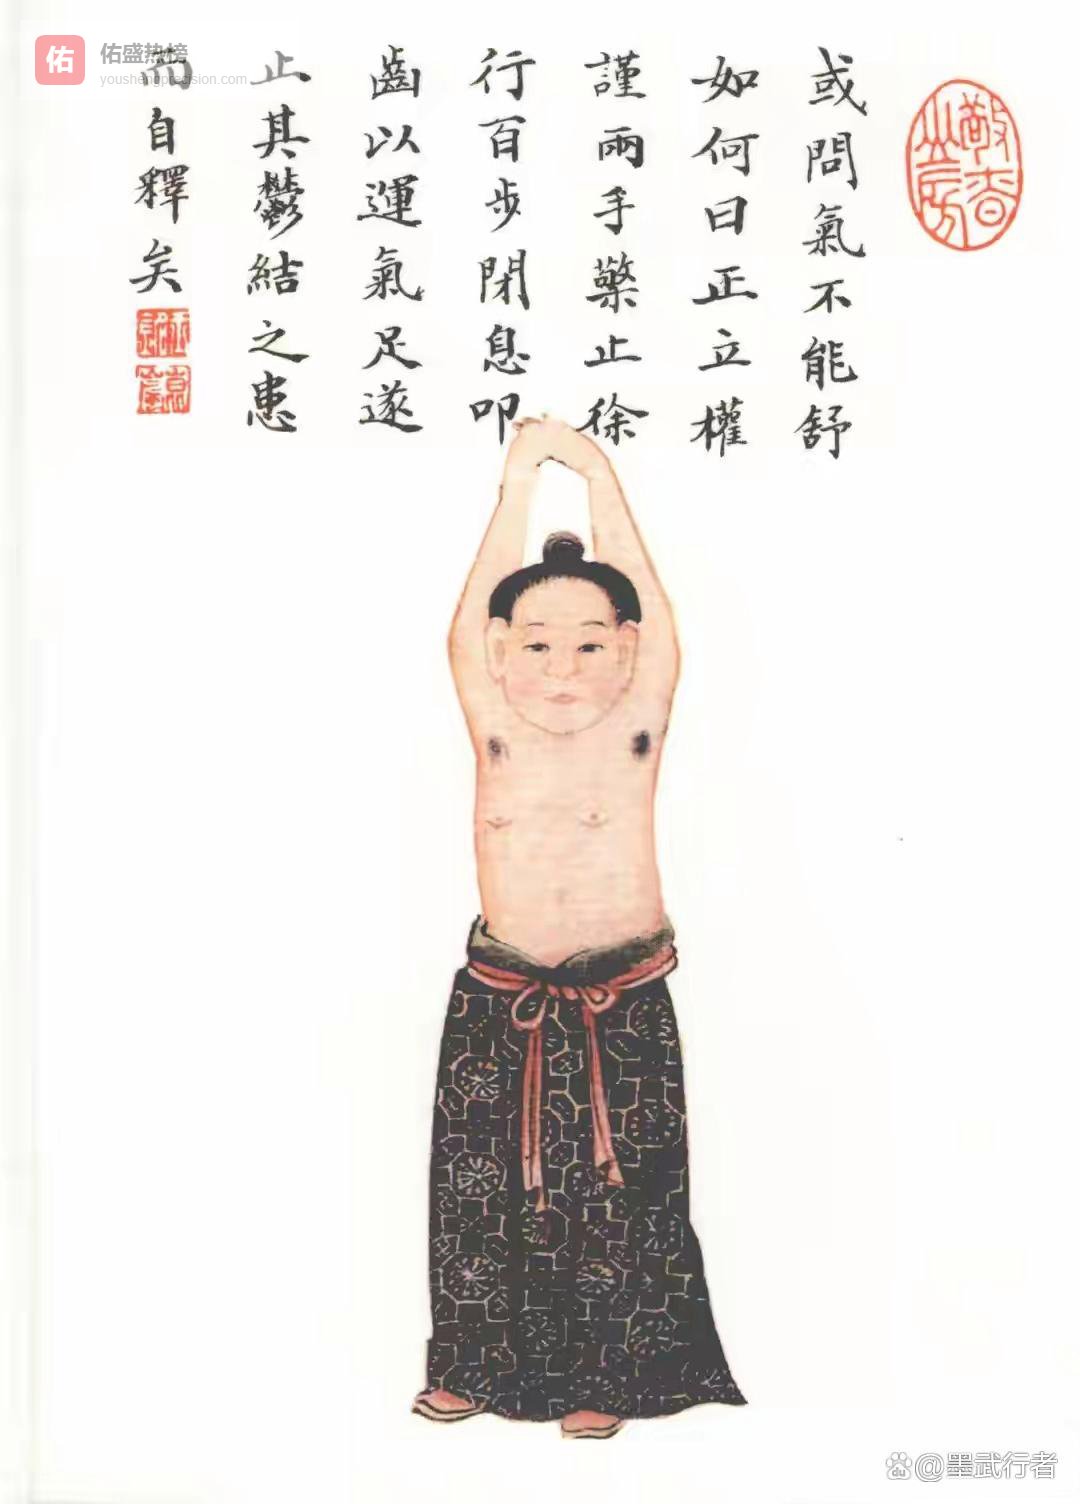 或問氣不能舒
如何曰正立權
謹兩手擎止徐
行百步閉息叩
齒以運氣足遂
止其鬱結之患
而自釋矣
佑
佑盛热榜
youshengprecision.com
du
@墨武行者